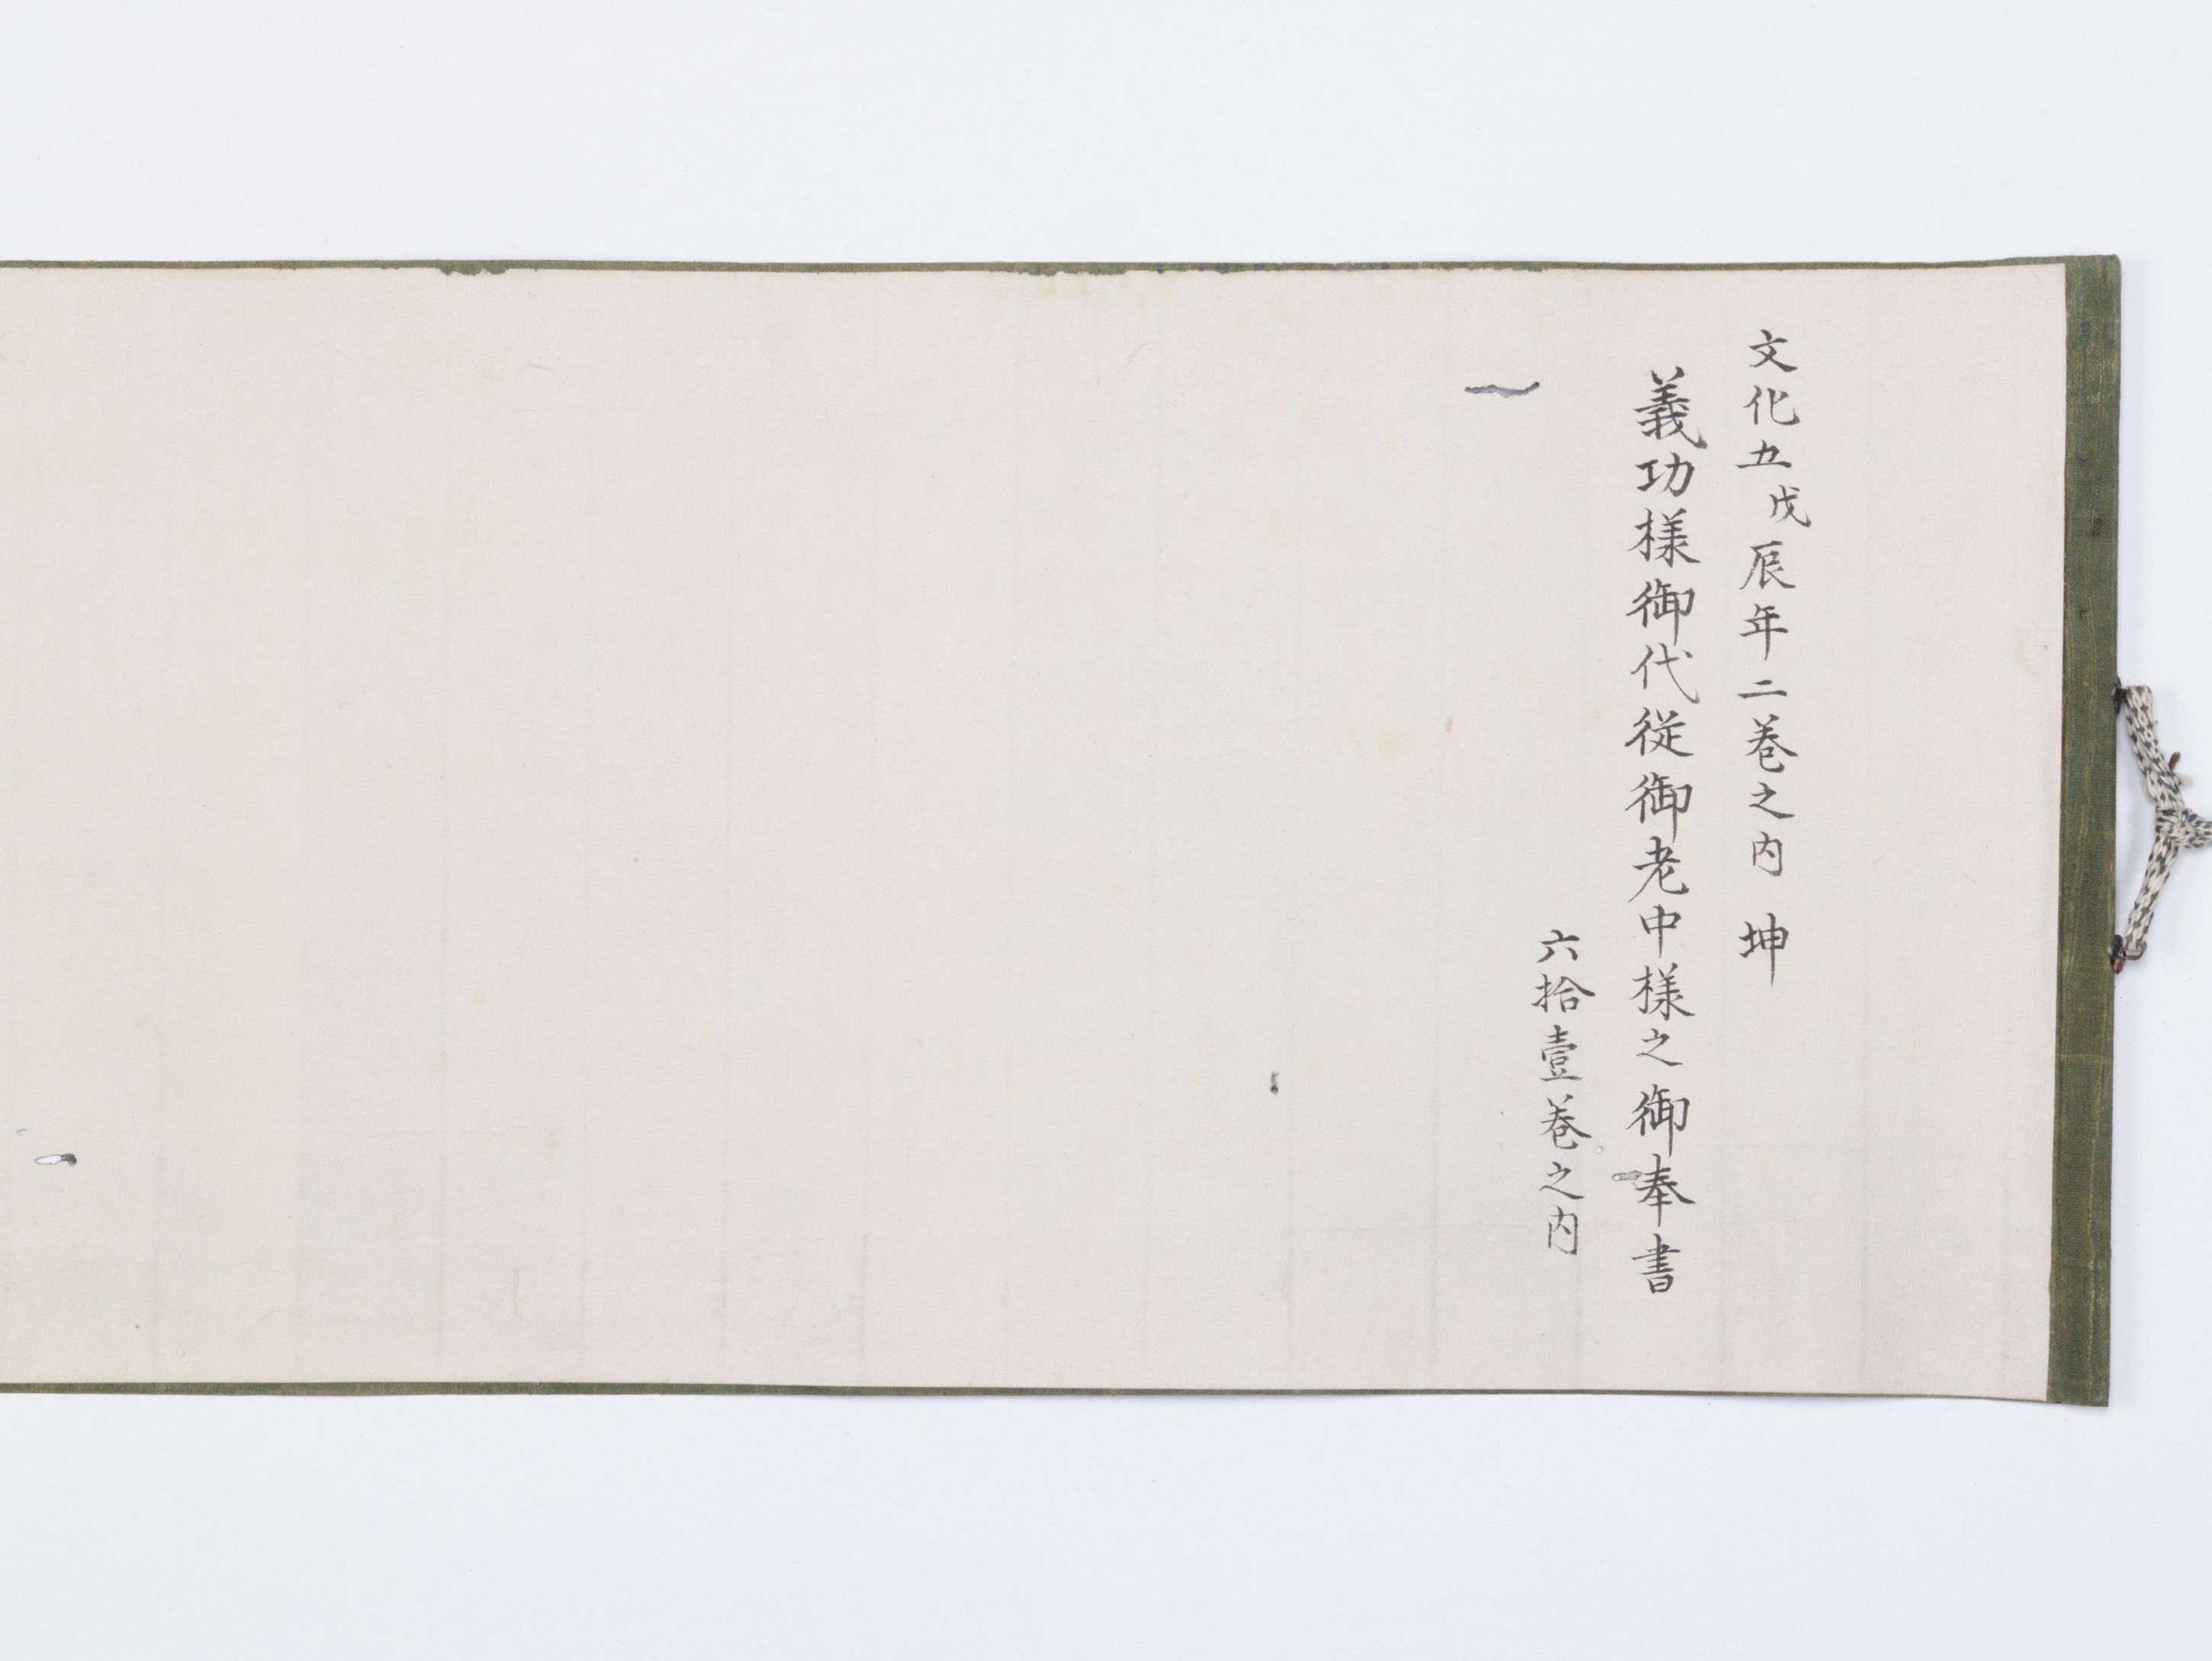 文化五戊辰年二巻之内 坤
義功様御代従御老中様之御奉書
六拾壹巻之内